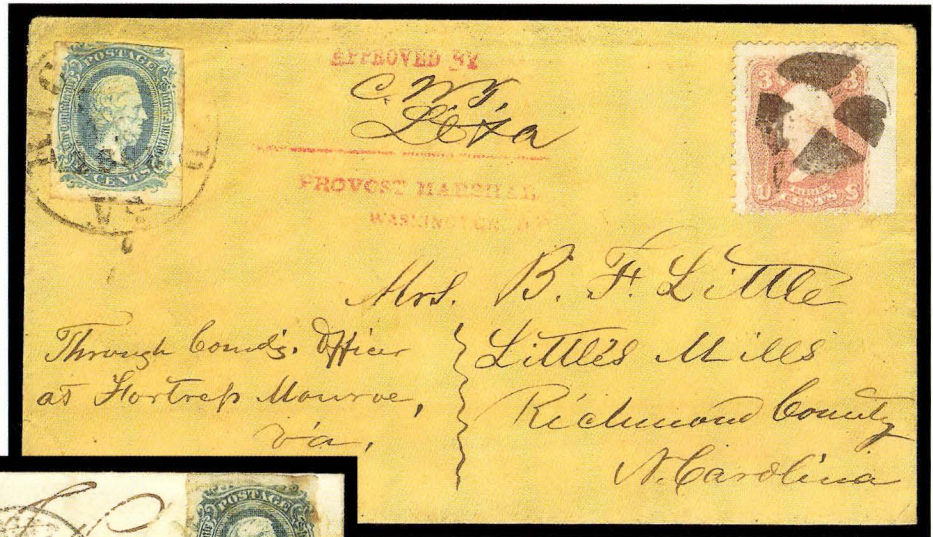 POSTAGE
CENTS
RIC
VA
APPROVED BY
PROVOST MARSHAL,
WASHINGTON, D
3
3
U
S
CENTS
Mrs. B. F. Little
Little's Mills
Richmond County
N. Carolina
Through Comd'g. Officer
at Fortress Monroe,
Va.
POSTAGE